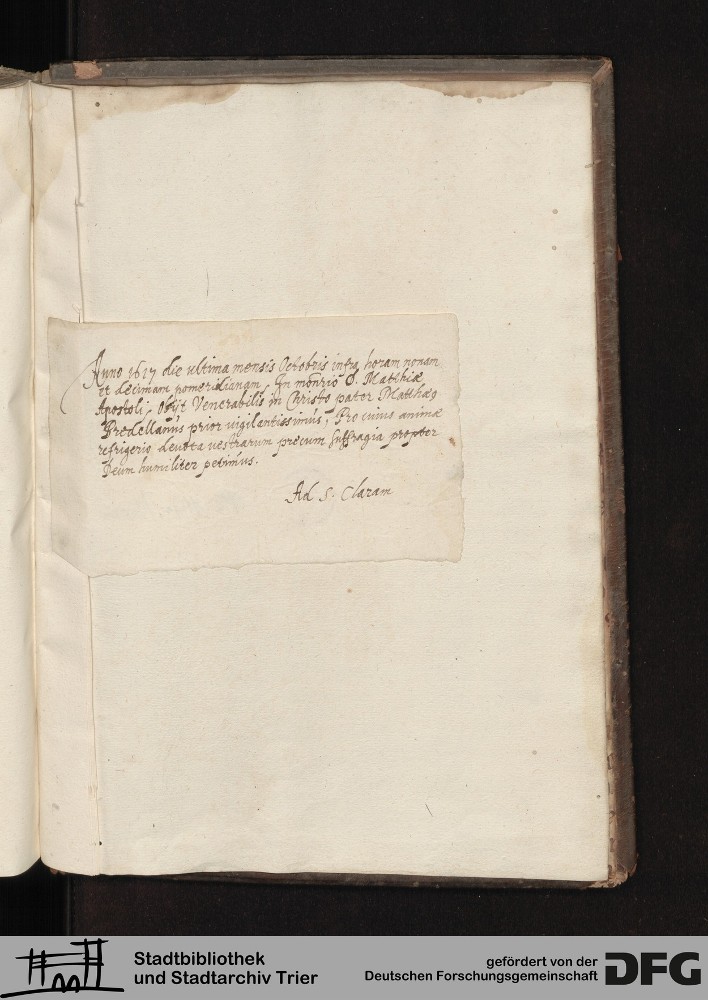 Anno 1617 die ultima mensis Octobris infra horam nonam
et decimam pomeridianam, In mōnrio D. Matthiæ
Apostoli, Obijt Venerabilis in Christo pater Matthæo
prior vigilantissimus, Pro cuius animæ
refrigerio devota vestrarum precum suffragia propter
Deum humiliter petimus.
Ad S. Claram
Stadtbibliothek
und Stadtarchiv Trier
gefördert von der
Deutschen Forschungsgemeinschaft
DFG